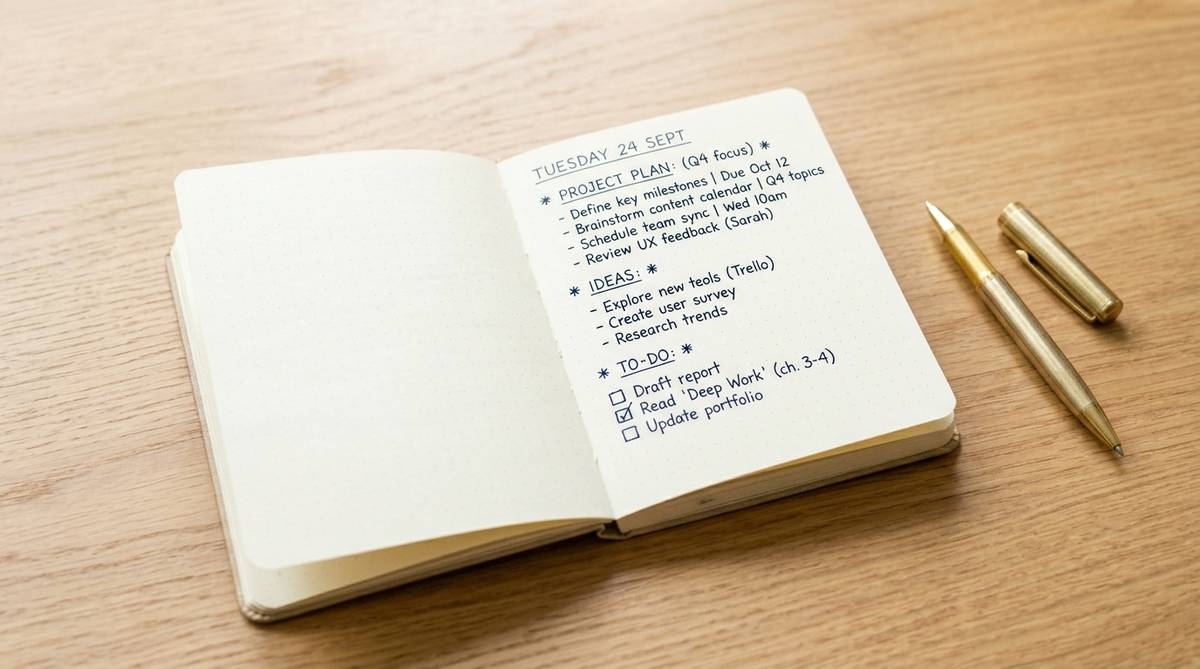 TUESDAY 24 SEPT
* PROJECT PLAN: (Q4 focus) *
- Define key milestones | Due Oct 12
- Brainstorm content calendar | Q4 topics
- Schedule team sync | Wed 10am
- Review UX feedback (Sarah)
* IDEAS: *
- Explore new teols (Trello)
- Create user survey
- Research trends
* TO-DO: *
☐ Draft report
☑ Read 'Deep Work' (ch. 3-4)
☐ Update portfolio